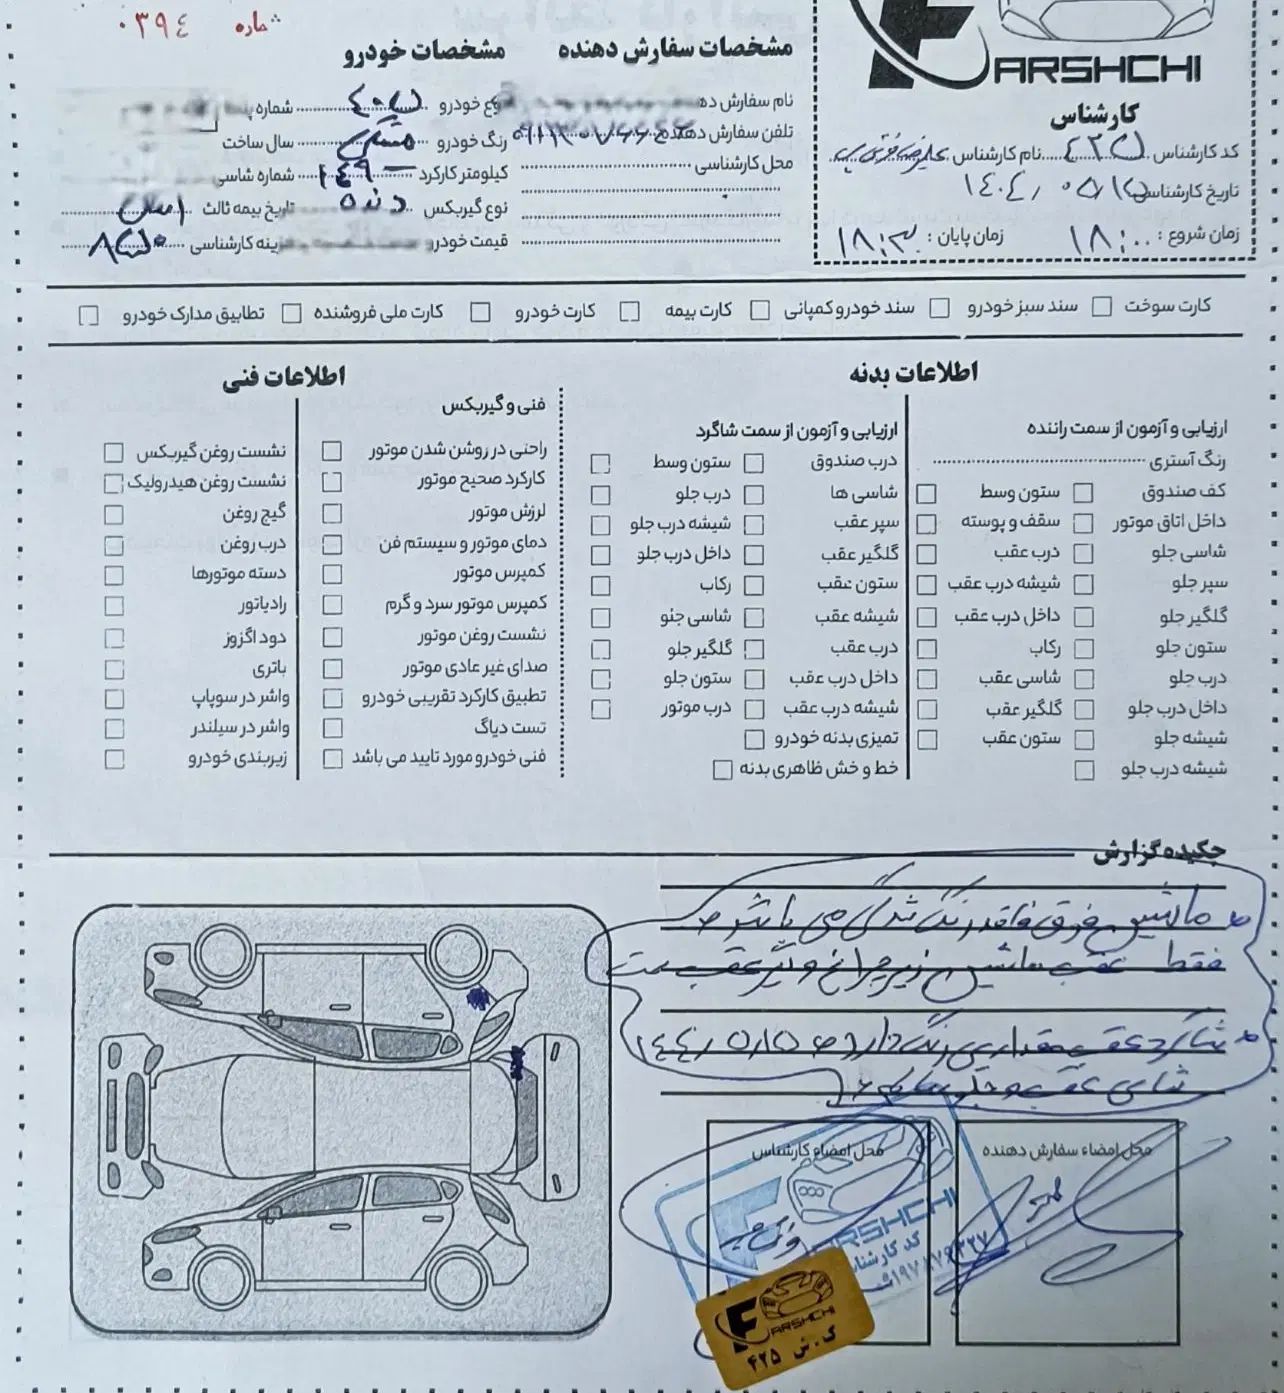 شماره ۰۳۹٤
FARSHCHI
کارشناس
کد کارشناس ٤۲۵ نام کارشناس علیرضا
تاریخ کارشناسی ۱٤۰٤/۰۵/۱۵
زمان شروع : ۱۸:۰۰ زمان پایان : ۱۸:۳۰
مشخصات سفارش دهنده
نام سفارش ده
تلفن سفارش دهنده
محل کارشناسی
مشخصات خودرو
وع خودرو شماره
رنگ خودرو مشکی سال ساخت
کیلومتر کارکرد ۱٤۹۰۰۰ شماره شاسی
نوع گیربکس دنده تاریخ بیمه ثالث
قیمت خودرو زینه کارشناسی
کارت سوخت سند سبز خودرو سند خودرو کمپانی کارت بیمه کارت خودرو کارت ملی فروشنده تطابیق مدارک خودرو
اطلاعات بدنه
ارزیابی و آزمون از سمت راننده
رنگ آستری
کف صندوق ستون وسط
داخل اتاق موتور سقف و پوسته
شاسی جلو درب عقب
سپر جلو شیشه درب عقب
گلگیر جلو داخل درب عقب
ستون جلو رکاب
درب جلو شاسی عقب
داخل درب جلو گلگیر عقب
شیشه جلو ستون عقب
شیشه درب جلو
ارزیابی و آزمون از سمت شاگرد
درب صندوق ستون وسط
شاسی ها درب جلو
سپر عقب شیشه درب جلو
گلگیر عقب داخل درب جلو
ستون عقب رکاب
شیشه عقب شاسی جنو
درب عقب گلگیر جلو
داخل درب عقب ستون جلو
شیشه درب عقب درب موتور
تمیزی بدنه خودرو
خط و خش ظاهری بدنه
اطلاعات فنی
فنی و گیربکس
راحتی در روشن شدن موتور نشست روغن گیربکس
کارکرد صحیح موتور نشست روغن هیدرولیک
لرزش موتور گیج روغن
دمای موتور و سیستم فن درب روغن
کمپرس موتور دسته موتورها
کمپرس موتور سرد و گرم رادیاتور
نشست روغن موتور دود اگزوز
صدای غیر عادی موتور باتری
تطبیق کارکرد تقریبی خودرو واشر در سوپاپ
تست دیاگ واشر در سیلندر
فنی خودرو مورد تایید می باشد زیربندی خودرو
چکیده گزارش
ماشین فوق فاقد رنگ شدگی می باشد
فقط عقب ماشین زیر چراغ و گلگیر عقب سمت
شاگرد عقب مقداری رنگ دارد
شاسی عقب و جلو سالم
محل امضاء سفارش دهنده
محل امضاء کارشناس
FARSHCHI
کد کارشناس
FARSHCHI
ک.ش ۴۲۵